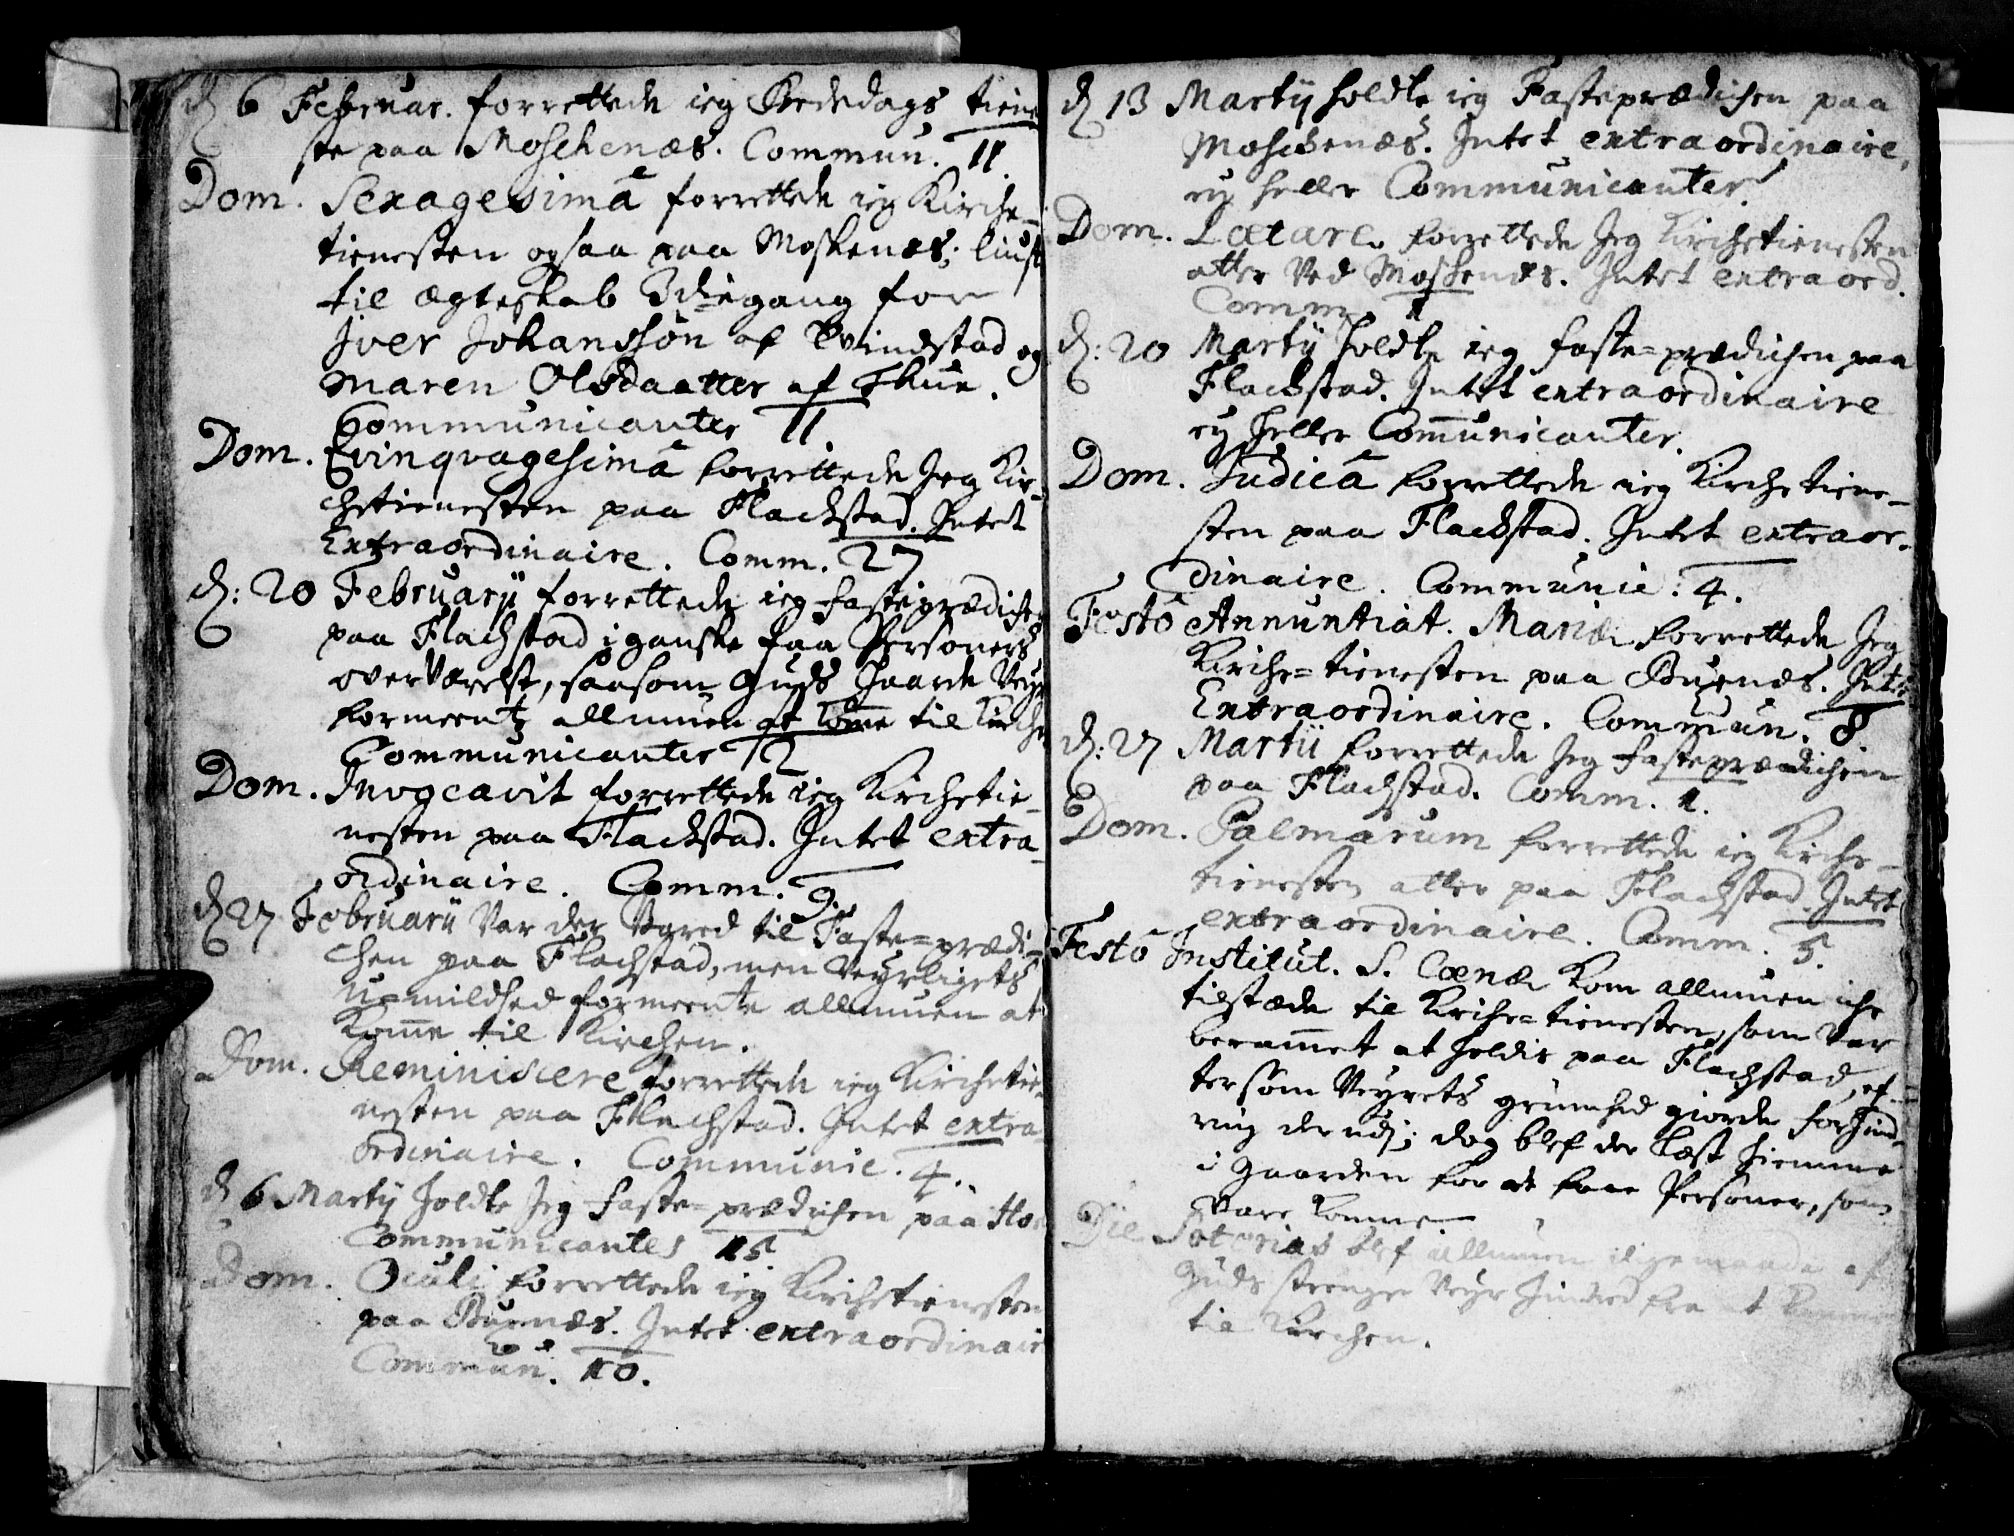 d 6 Februar. forrettede ieg Bededags tiene
ste paa Moschenæs. Commun. 11.
Dom. Sexagesimâ forrettede ieg Kirche-
tienesten ogsaa paa Moskenæs; liust
til ægteskab 3die gang for
Iver Johanssøn af Qvindstad og
Maren Olsdaatter af Thue.
Communicanter 11
Dom. Qvinqvagesimâ forrettede Jeg Kir-
chetienesten paa Flackstad. Intet
Extraordinaire. Comm. 27
d: 20 Februarij forrettede ieg fasteprædichen
paa Flachstad i ganske faa Personers
overværelse, saasom Guds haarde Veyr
formeente allmuen at komme til Kirche
Communicanter 12
Dom. Invocavit forrettede ieg Kirchetie-
nesten paa Flackstad. Intet extra-
ordinaire. Comm. 9.
d 27 Februarii Var der bered til Faste=prædi-
chen paa Flachstad, men Veyrligets
U=mildhed formeente allmuen at
komme til Kirchen.
Dom. Reminiscere forrettede ieg Kirchetie-
nesten paa Flachstad. Intet extra-
ordinaire. Communic. 4.
d 6 Martij holdte Jeg faste=prædichen paa
Communicantes 15
Dom. Oculi forrettede ieg Kirchetienesten
paa Buxnæs. Intet extraordinair
Commun. 10.
d 13 Martij holdte ieg Fasteprædichen paa
Moschenæs. Intet extraordinaire,
ey heller Communicanter.
Dom. Lætare forrettede Jeg Kirchetienesten
atter Ved Moschenæs. Intet extraord.
Comm. 1
d: 20 Martij holdte ieg faste=prædichen paa
Flackstad. Intet extraordinaire
ey heller Communicanter.
Dom. Judicâ forrettede ieg Kirchetiene-
sten paa Flackstad. Intet extraor-
dinaire. Communic: 4.
Festô Annuntiat. Mariæ forrettede Jeg
Kirche=tienesten paa Buxnæs. Intet
Extraordinaire. Commun. 8
d: 27 Martii forrettede Jeg fasteprædichen
paa Flachstad. Comm. 1.
Dom. Palmarum forrettede ieg Kirche-
tienesten atter paa Flachstad. Intet
extraordinaire. Comm. 5.
Festô Institut. S. Cœnæ kom allmuen iche
tilstæde til Kirche=tienesten, som Var
berammet at holdis paa Flachstad, ef-
tersom Veyrets grumhed giorde forhind-
ring derudj; dog blef der læst hiemme
i Gaarden for de faae Personer, som
vare komne
Die Soterias blef allmuen i lige maade af
Guds strenge Veyr hindred fra at komme
til Kirchen.